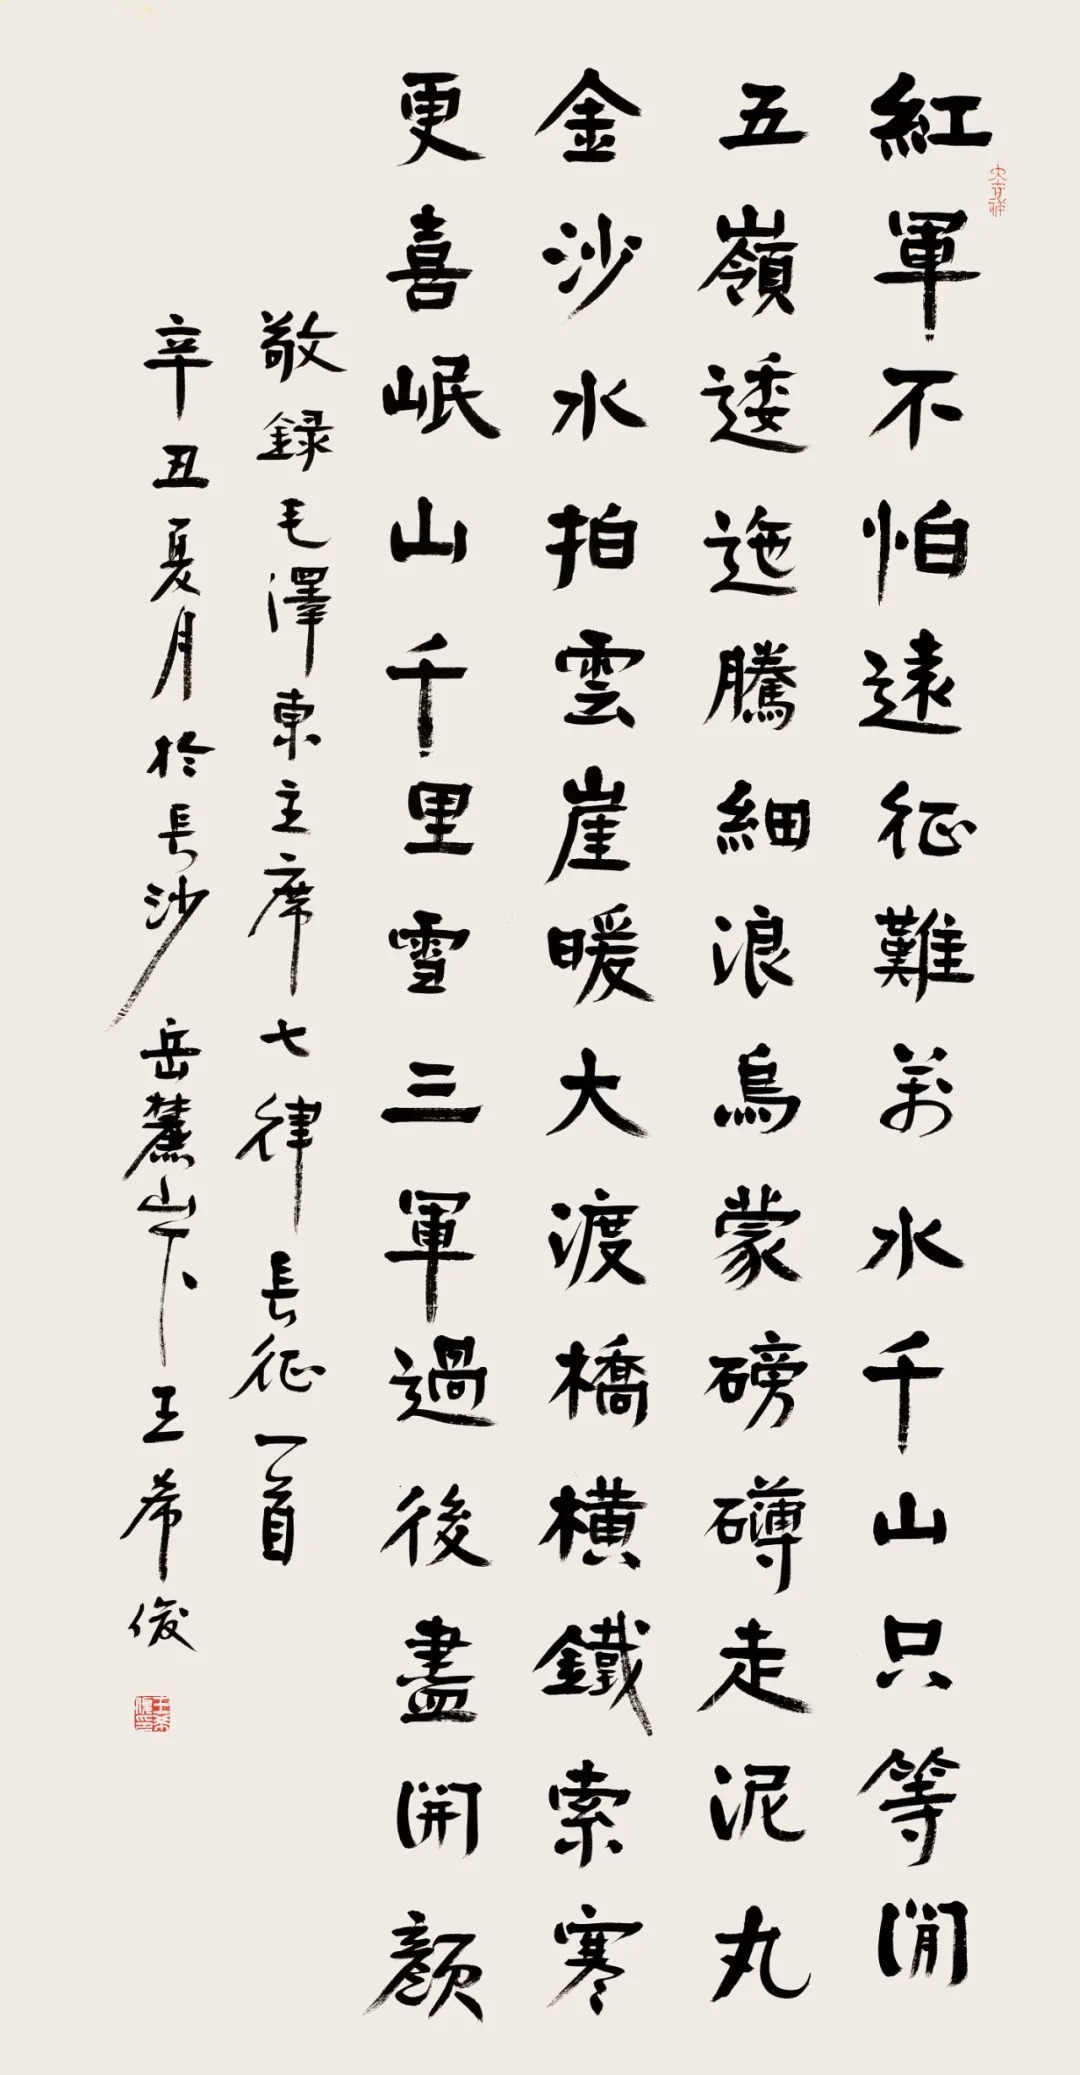 紅軍不怕遠征難萬水千山只等閒
五嶺逶迤騰細浪烏蒙磅礴走泥丸
金沙水拍雲崖暖大渡橋橫鐵索寒
更喜岷山千里雪三軍過後盡開顏
敬録毛澤東主席七律長征一首
辛丑夏月於長沙岳麓山下王希俊